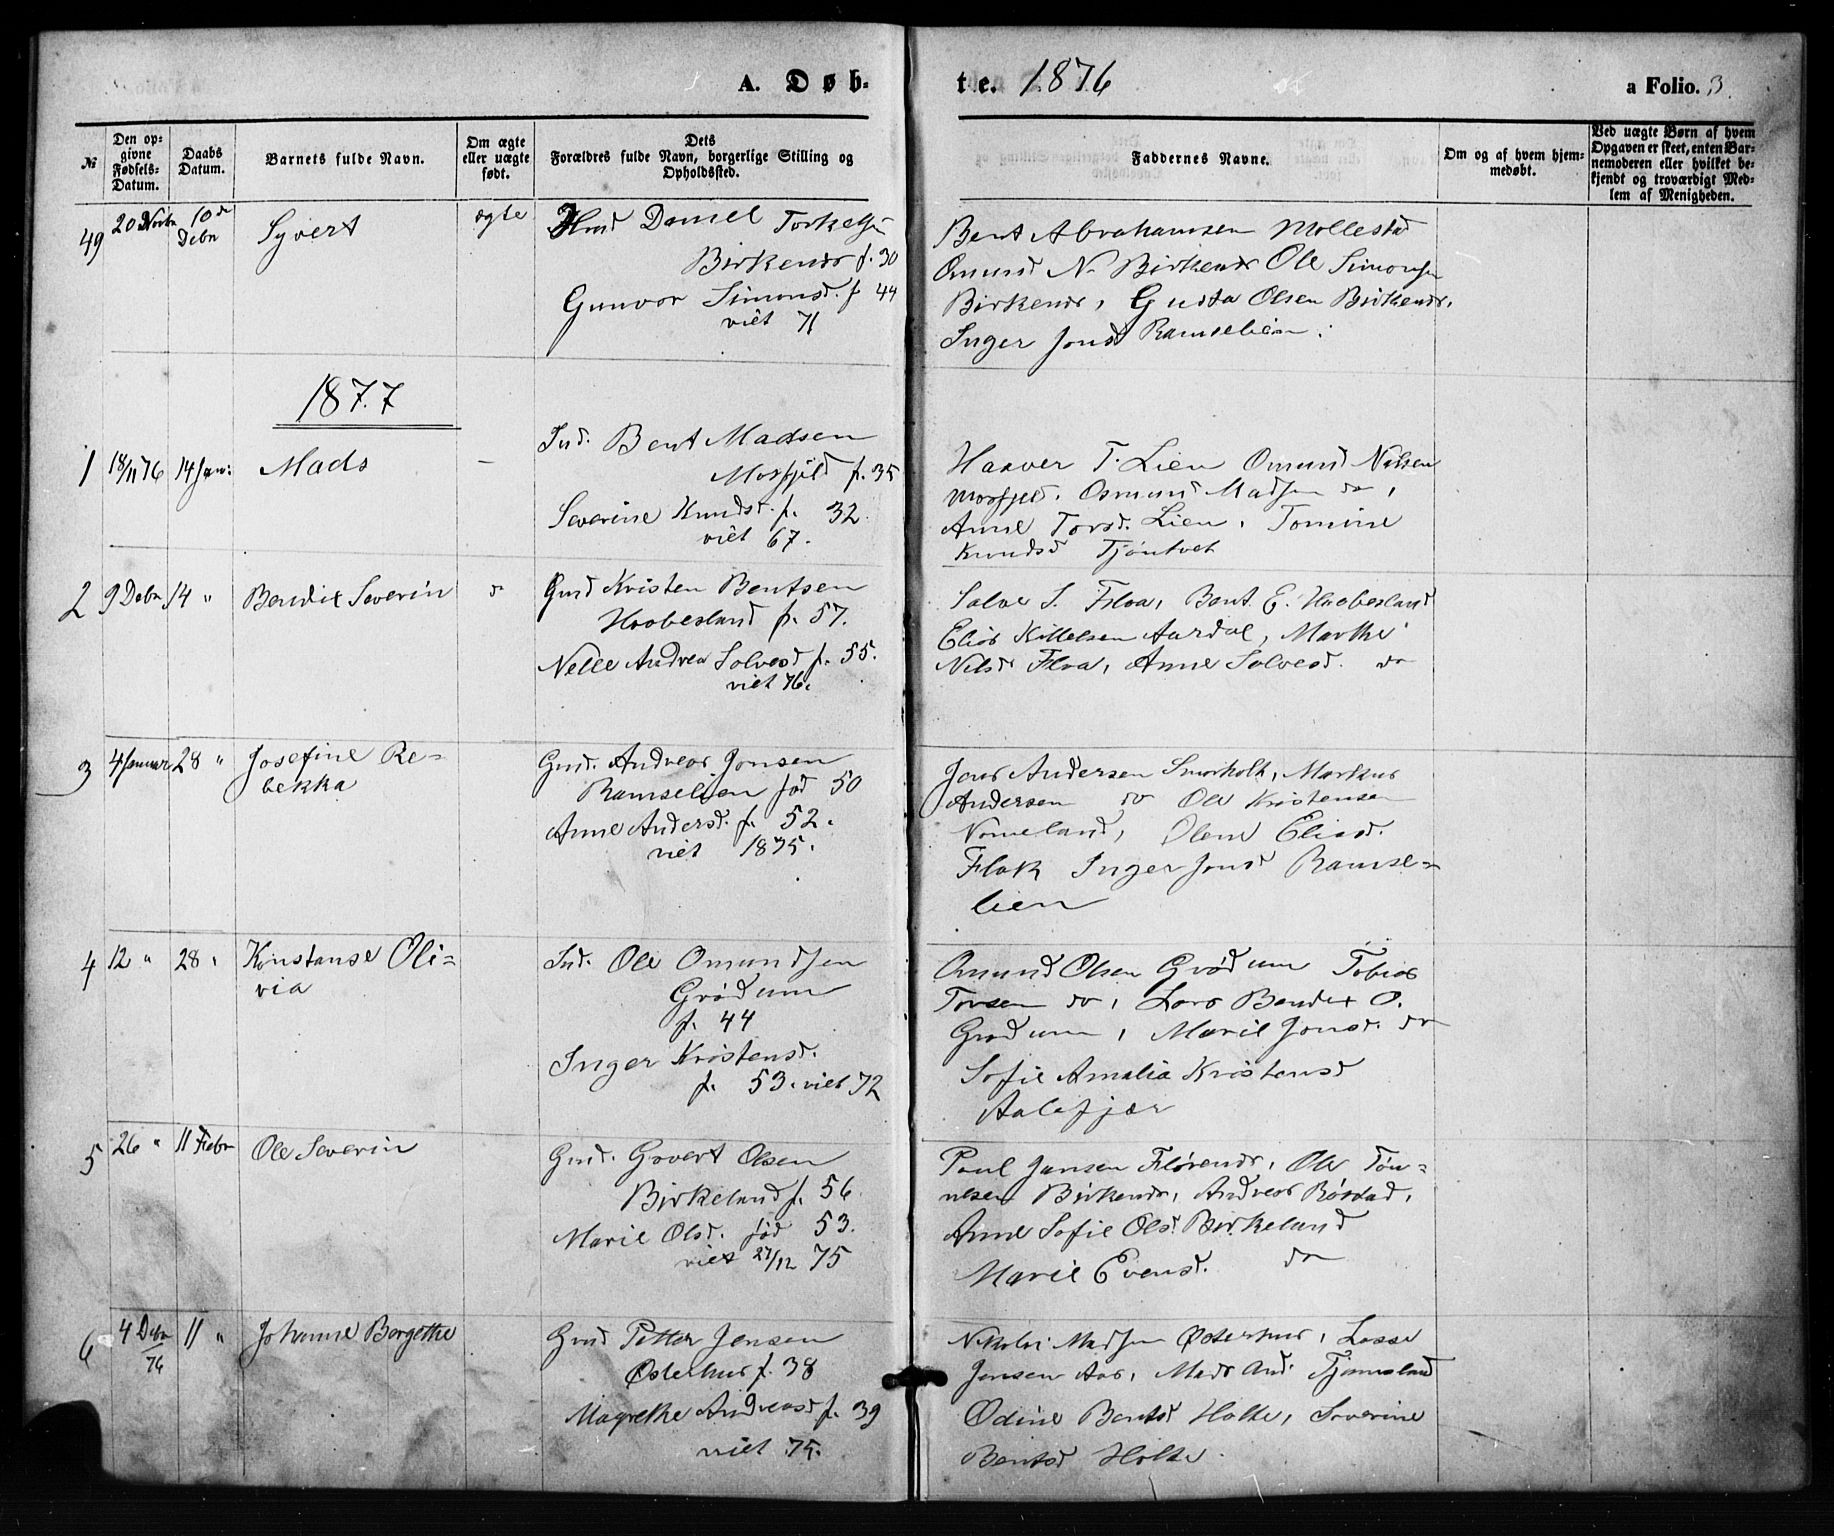 A. Døb-
te. 1876
a Folio. 3.
№
Den op-
givne
Fødsels-
Datum.
Daabs
Datum.
Barnets fulde Navn.
Om ægte
eller uægte
født.
Dets
Forældres fulde Navn, borgerlige Stilling og
Opholdssted.
Faddernes Navne.
Om og af hvem hjem-
medøbt.
Ved uægte Børn af hvem
Opgaven er skeet, enten Bar-
nemoderen eller hvilket be-
kjendt og troværdigt Med-
lem af Menigheden.
49
20 Novbr
10de
Debr
Syvert
ægte
Daniel Torkelsen
Birkenes f. 30
Gunvor Simonsd. f 44
viet 71
Bent Abrahamsen Mollestad
Omund N. Birkenes Ole Simonsen
Birkenes, Gusta Olsen Birkenes,
Inger Jonsd Ramselien.
1877
1
18/11 76
14 Jan:
Mads
—
Ind. Bent Madsen
Mosfjeld f. 35
Severine Knudsd. f. 32.
viet 67.
Haaver T. Lien Omund Nilsen
Mosfjeld. Osmund Madsen do,
Anne Torsd. Lien, Tomine
Knudsd Tjøntvet
2
9 Debr
14 "
Bendix Severin
do
Gmd Kristen Bentsen
Hobesland f. 57.
Nelle Andrea Solvesd f. 55.
viet 76.
Salve S. Flaa, Bent E. Hobesland
Elias Kittelsen Aardal, Marthe
Nilsd Flaa, Anne Salvesd. do
3
4 Januar
28 "
Josefine Re-
bekka
Gmd. Andreas Jonsen
Ramselien fød 50
Anne Andersd. f. 52.
viet 1875.
Jens Andersen Smorholt, Markus
Andersen do Ole Kristensen
Nomeland, Olene Eliasd.
Flak Inger Jonsd Ramse-
lien
4
12 "
28 "
Konstanse Oli-
via
Ind. Ole Omundsen
Grødum
f. 44
Inger Kristensd.
f. 53. viet 72
Omund Olsen Grødum Tobias
Torsen do, Lars Bendix O.
Grødum, Marie Jonsd. do
Sofie Amalia Kristensd
Aalefjær
5
26 "
11 Febr
Ole Severin
Gmd. Govert Olsen
Birkeland f. 56.
Marie Olsd. fød 53.
viet 27/12 75
Poul Jansen Flørenes, Ole Tøn-
nesen Birkenes, Andreas Røstad,
Anne Sofie Olsd. Birkeland
Marie Evensd. do
6
4 Debr
/76
11 "
Johanne Bergethe
Gmd Petter Jensen
Østerhus f. 38
Magrethe Andreasd f. 39
viet 75.
Nikolai Madsen Østerhus, Lasse
Jensen Aas, Mads And. Tjomsland
Ødine Bentsd Holte, Severine
Bentsd Holte.